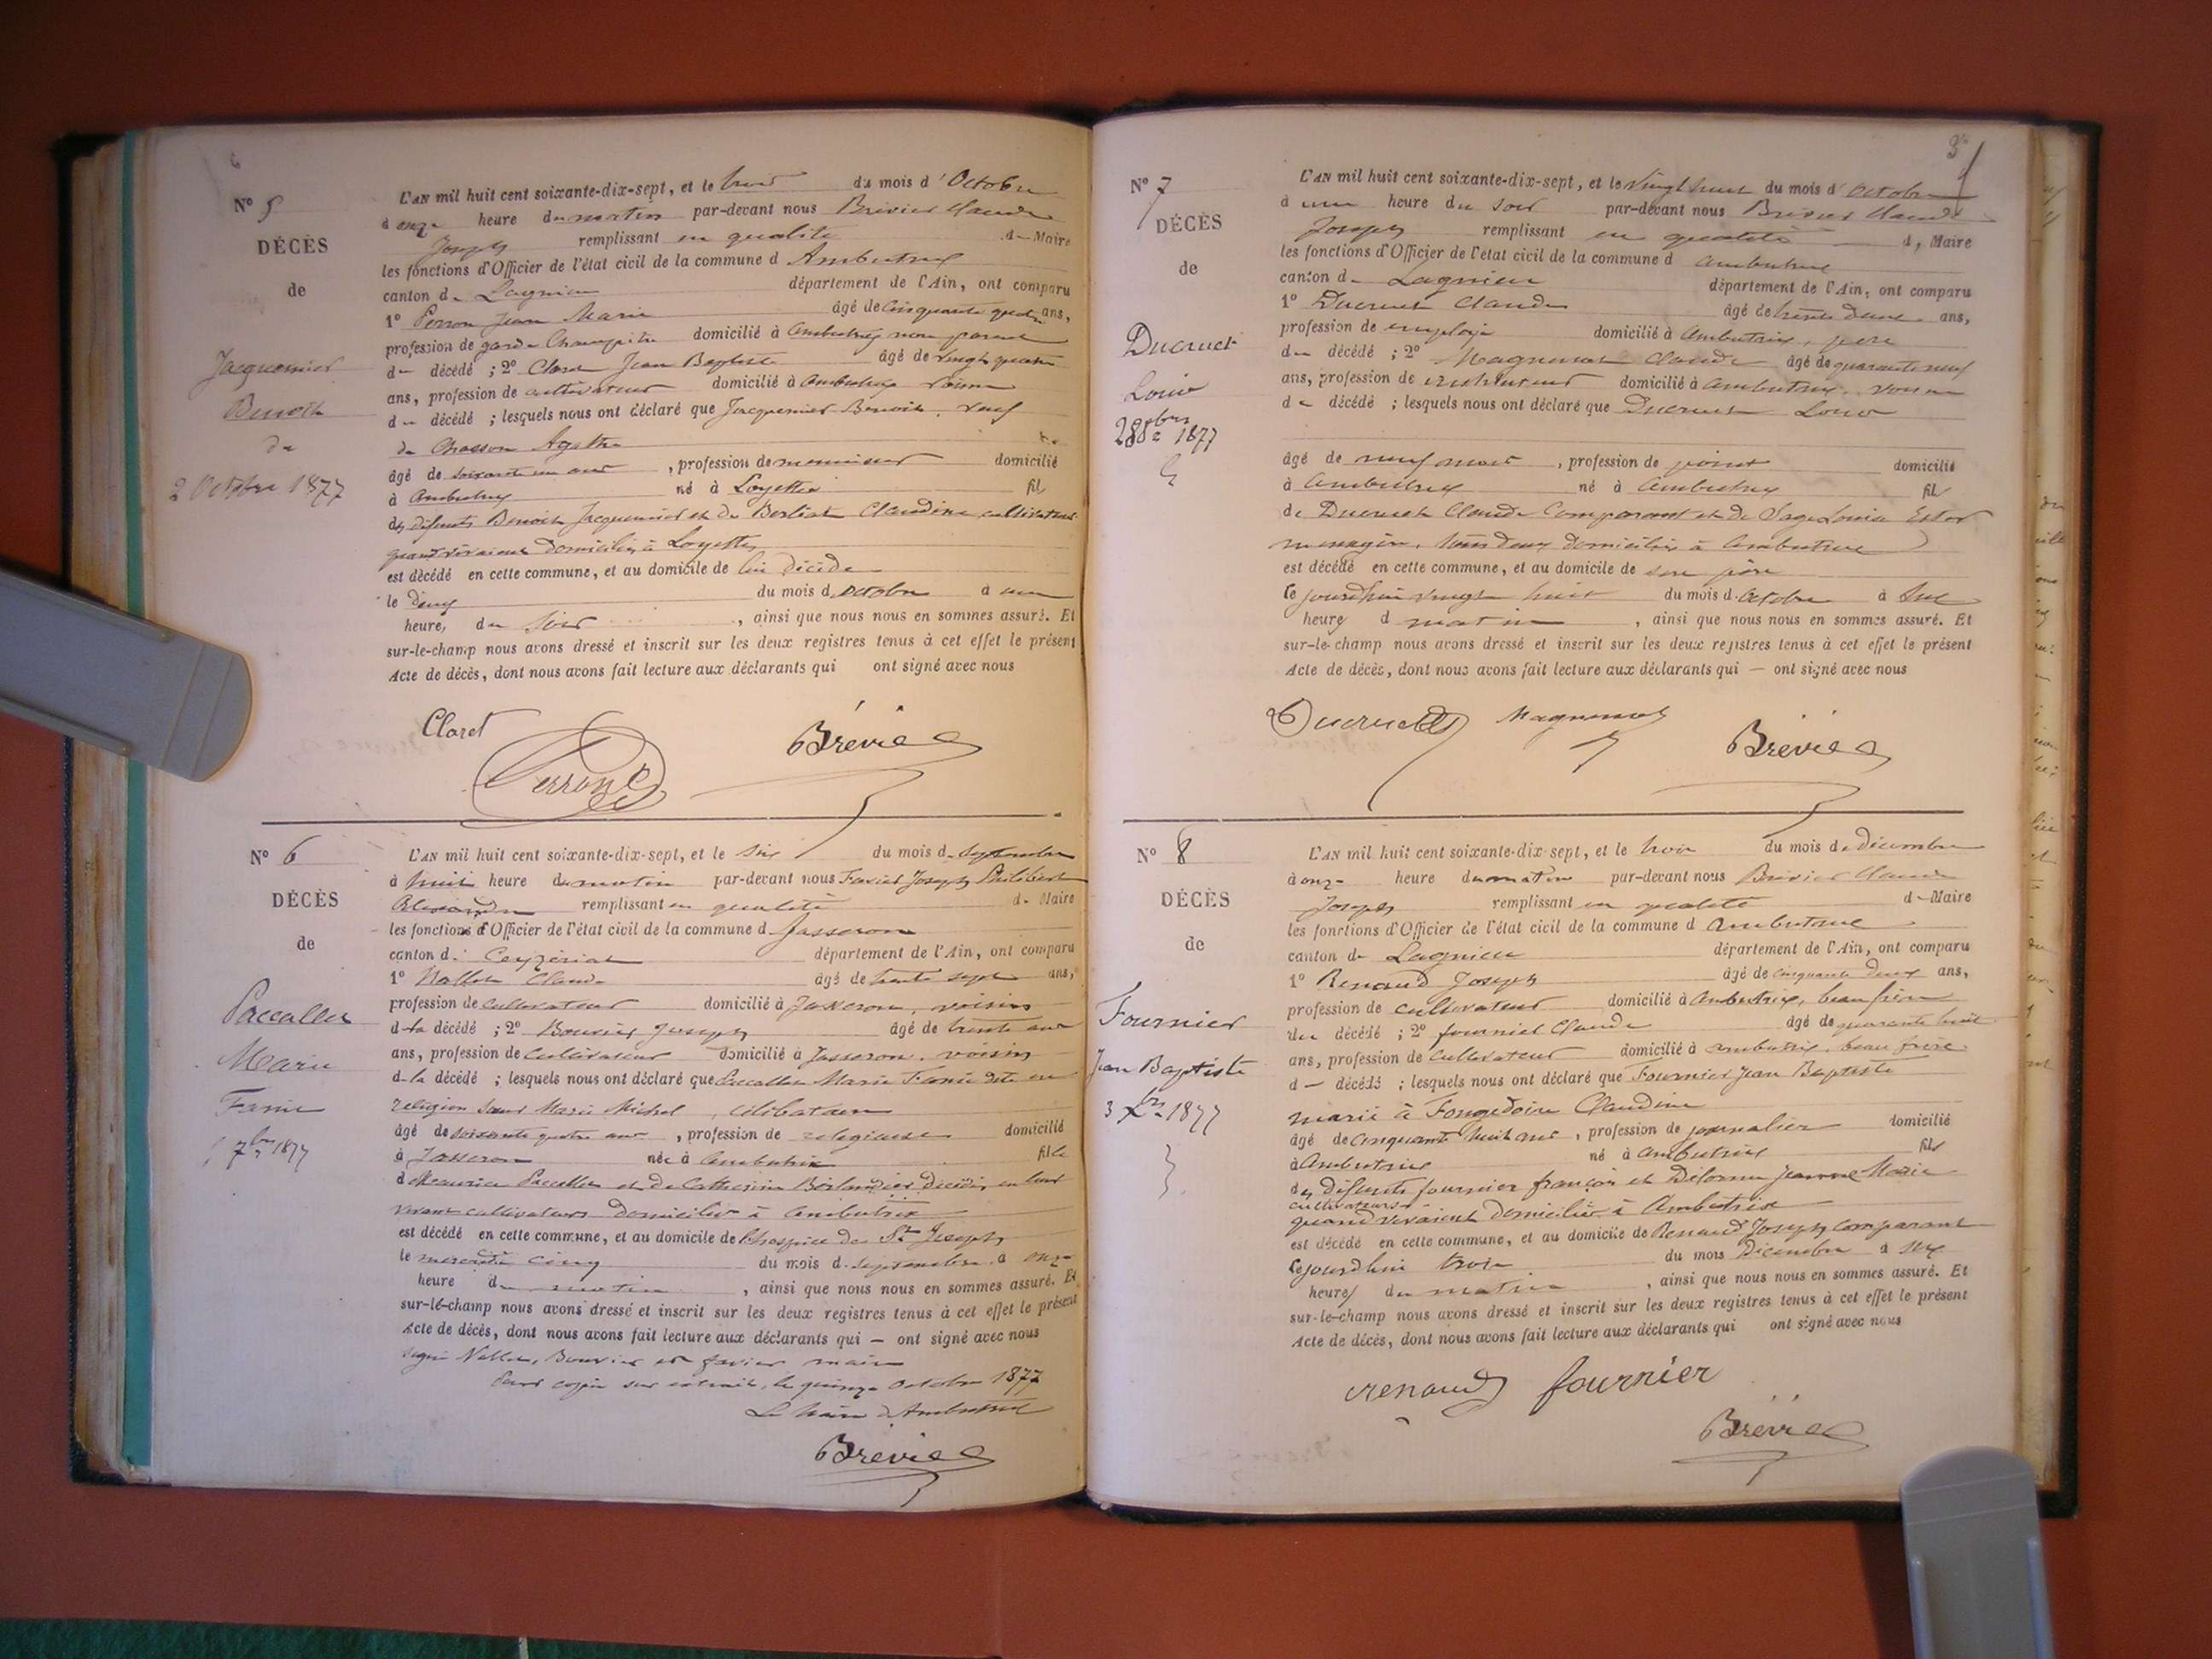 N° 5
DÉCÈS
de
Jacquemier
Benoît
du
2 Octobre 1877
L'AN mil huit cent soixante-dix-sept, et le trois du mois d'Octobre
à onze heure du matin par-devant nous Brévier Claude
Joseph remplissant en qualité de Maire
les fonctions d'Officier de l'état civil de la commune d Ambutrix
canton de Lagnieu département de l'Ain, ont comparu
1° Perron Jean Marie âgé de cinquante quatre ans,
profession de garde champêtre domicilié à Ambutrix non parent
du décédé ; 2° Claret Jean Baptiste âgé de vingt quatre
ans, profession de cultivateur domicilié à Ambutrix voisin
du décédé ; lesquels nous ont déclaré que Jacquemier Benoit, veuf
de Chasson Agathe
âgé de soixante un ans, profession de menuisier domicilié
à Ambutrix né à Loyettes fils
des défunts Benoit Jacquemier et de Berliat Claudine cultivateurs
quand vivaient domiciliés à Loyettes
est décédé en cette commune, et au domicile de lui décédé
le deux du mois d'octobre à une
heure, du soir, ainsi que nous nous en sommes assuré. Et
sur-le-champ nous avons dressé et inscrit sur les deux registres tenus à cet effet le présent
Acte de décès, dont nous avons fait lecture aux déclarants qui ont signé avec nous
Claret
Perron
Brévier
N° 6
DÉCÈS
de
Paccallet
Marie
Fanie
7bre 1877
L'AN mil huit cent soixante-dix-sept, et le six du mois de septembre
à huit heure du matin par-devant nous Favier Joseph Philibert
Alexandre remplissant en qualité de Maire
les fonctions d'Officier de l'état civil de la commune d Jasseron
canton de Ceyzériat département de l'Ain, ont comparu
1° Nallet Claude âgé de trente sept ans,
profession de cultivateur domicilié à Jasseron, voisin
de la décédé ; 2° Bouvier Joseph âgé de trente
ans, profession de cultivateur domicilié à Jasseron, voisin
de la décédé ; lesquels nous ont déclaré que Paccallet Marie Fanie dite en
religion sœur Marie Michel, célibataire
âgé de soixante quatre ans, profession de religieuse domicilié
à Jasseron née à Ambutrix fille
de Maurice Paccallet et de Catherine décédés en leur
vivant cultivateurs domiciliés à Ambutrix
est décédé en cette commune, et au domicile de l'hospice de St Joseph
le mercredi cinq du mois de septembre à onze
heure du matin, ainsi que nous nous en sommes assuré. Et
sur-le-champ nous avons dressé et inscrit sur les deux registres tenus à cet effet le présent
Acte de décès, dont nous avons fait lecture aux déclarants qui — ont signé avec nous
signé Nallet, Bouvier et favier maire
Pour copie sur extrait, le quinze Octobre 1877
Le Maire d'Ambutrix
Brévier
N° 7
DÉCÈS
de
Ducruet
Louis
28 8bre 1877
L'AN mil huit cent soixante-dix-sept, et le vingt huit du mois d'octobre
à une heure du soir par-devant nous Brévier Claude
Joseph remplissant en qualité de Maire
les fonctions d'Officier de l'état civil de la commune d Ambutrix
canton de Lagnieu département de l'Ain, ont comparu
1° Ducruet Claude âgé de trente deux ans,
profession de employé domicilié à Ambutrix, père
du décédé ; 2° Magnenot Claude âgé de quarante neuf
ans, profession de instituteur domicilié à Ambutrix, voisin
du décédé ; lesquels nous ont déclaré que Ducruet Louis
âgé de neuf mois, profession de point domicilié
à Ambutrix né à Ambutrix fils
de Ducruet Claude Comparant et de Sage Louise Ester
ménagère, tous deux domiciliés à Ambutrix
est décédé en cette commune, et au domicile de son père
ce jourd'hui vingt huit du mois d'Octobre à Six
heures d matin, ainsi que nous nous en sommes assuré. Et
sur-le-champ nous avons dressé et inscrit sur les deux registres tenus à cet effet le présent
Acte de décès, dont nous avons fait lecture aux déclarants qui — ont signé avec nous
Ducruet Magnenot
Brévier
N° 8
DÉCÈS
de
Fournier
Jean Baptiste
3 Xbre 1877
L'AN mil huit cent soixante-dix-sept, et le trois du mois de décembre
à onze heure du matin par-devant nous Brévier Claude
Joseph remplissant en qualité de Maire
les fonctions d'Officier de l'état civil de la commune d Ambutrix
canton de Lagnieu département de l'Ain, ont comparu
1° Renaud Joseph âgé de cinquante deux ans,
profession de cultivateur domicilié à Ambutrix, beau frère
du décédé ; 2° fournier Claude âgé de quarante huit
ans, profession de cultivateur domicilié à ambutrix, beau frère
d — décédé ; lesquels nous ont déclaré que Fournier Jean Baptiste
marié à Fongedoire Claudine
âgé de cinquante huit ans, profession de journalier domicilié
à Ambutrix né à Ambutrix fils
des défunts fournier françois et Délorme Jeanne Marie
cultivateurs
quand vivaient domiciliés à Ambutrix
est décédé en cette commune, et au domicile de Renaud Joseph comparant
ce jourd'hui trois du mois Décembre à six
heures du matin, ainsi que nous nous en sommes assuré. Et
sur-le-champ nous avons dressé et inscrit sur les deux registres tenus à cet effet le présent
Acte de décès, dont nous avons fait lecture aux déclarants qui ont signé avec nous
renaud fournier
Brévier